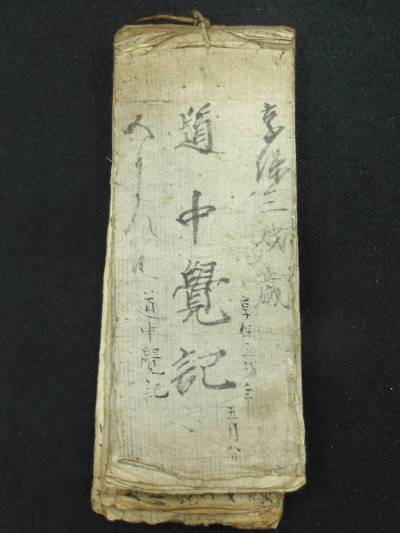 享保三戌歳
享保三戌年
五月
道中覺記
道中覺記